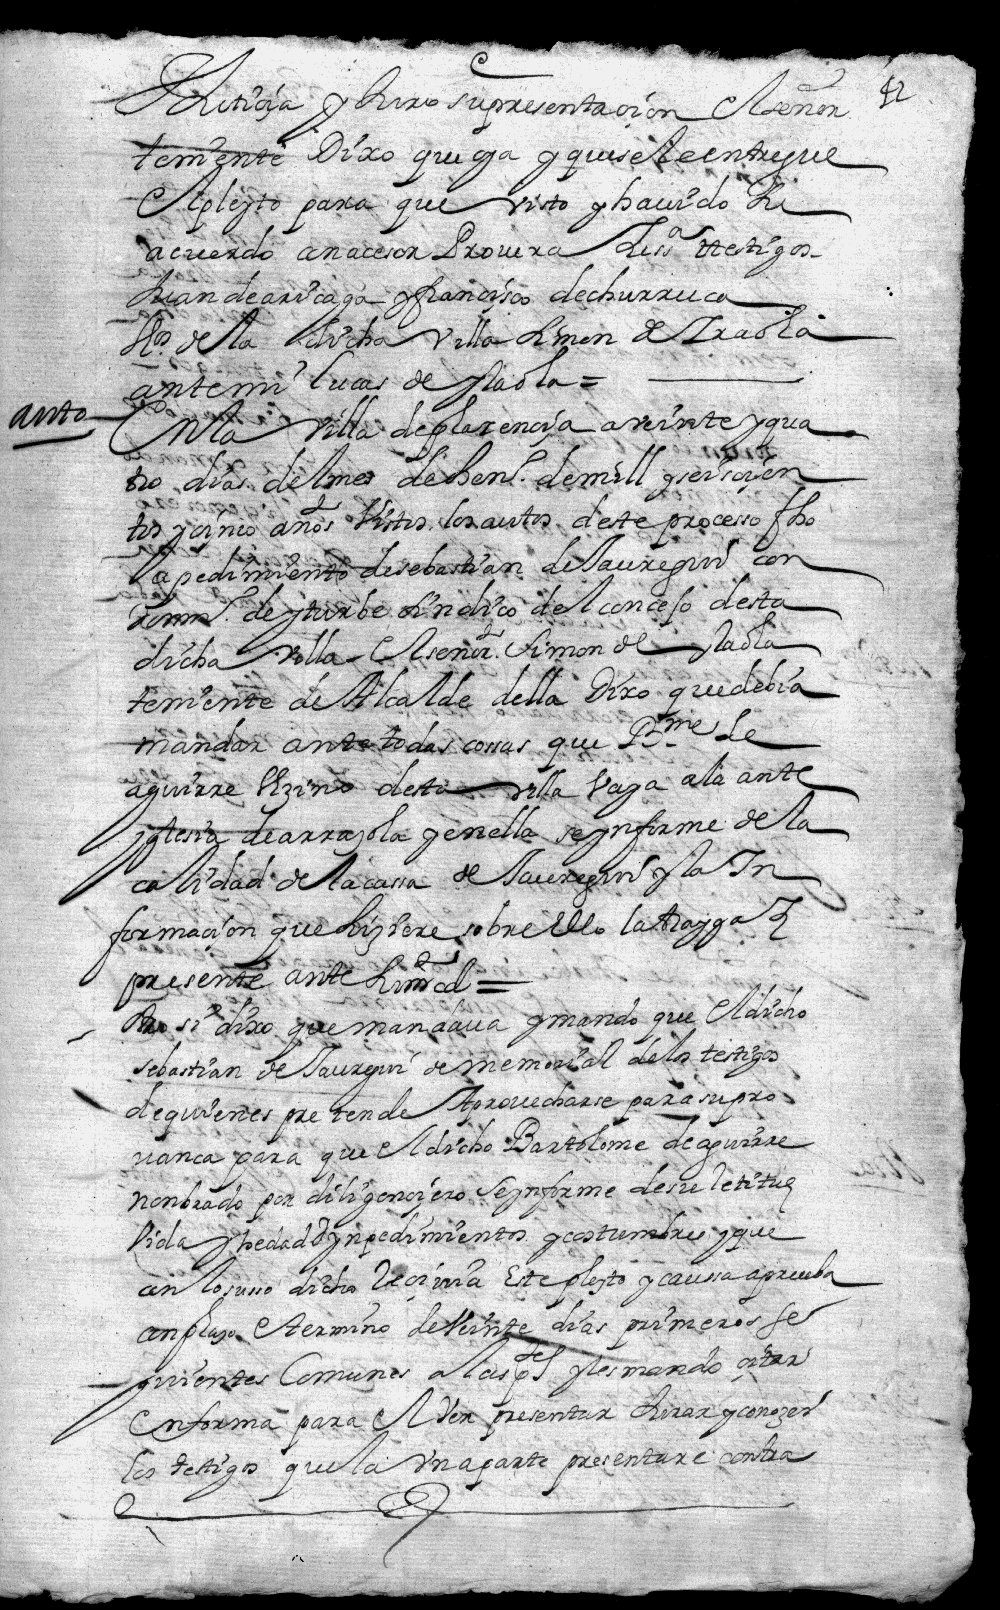 42
Justiçia y hizo su presentaçion El señor
teniente Dixo que oya y que se le entregue
El pleyto para que visto y havido Su
acuerdo con acesor Provera Jusa testigos
Juan de ariçaga y françisco de churruca
Vos. de la dicha villa Simon de Yraola
ante mi lucas de yraola =
auto
En la Villa de plazençia a veinte y qua
tro dias del mes de hen.º de mill y seisçien
tos y çinco años Vistos los autos deste proçesso fho
a pedimiento de sebastian de Jauregui con
Domi.º de yturbe sindico del conçejo desta
dicha villa El señor Simon de yraola
teniente de Alcalde della Dixo que debia
mandar ante todas cossas que B.me de
aguirre Vezino desta villa Vaya a la ante
yglesia de arrayola y en ella se ynforme de la
calidad de la cassa de Jauregui y la In
formaçion que hiziere sobre ello la trayga E
presente ante su md =
Otro si dixo que mandava y mando que El dicho
sebastian de Jauregui de memorial de los testigos
de quienes pretende Aprovecharse para su pro
vanca para que El dicho Bartolome de aguirre
nonbrado por diligençiero Se ynforme de su letitud
Vida y hedad E ynpedimientos y costumbres y que
con lo suso dicho Reçivia Este pleyto y caussa a prueba
con plazo E termino de Veinte dias primeros se
guientes Comunes a las ptes y les mando çitar
En forma para El Ver presentar Jurar y conozer
los testigos que la vna parte presentare contra